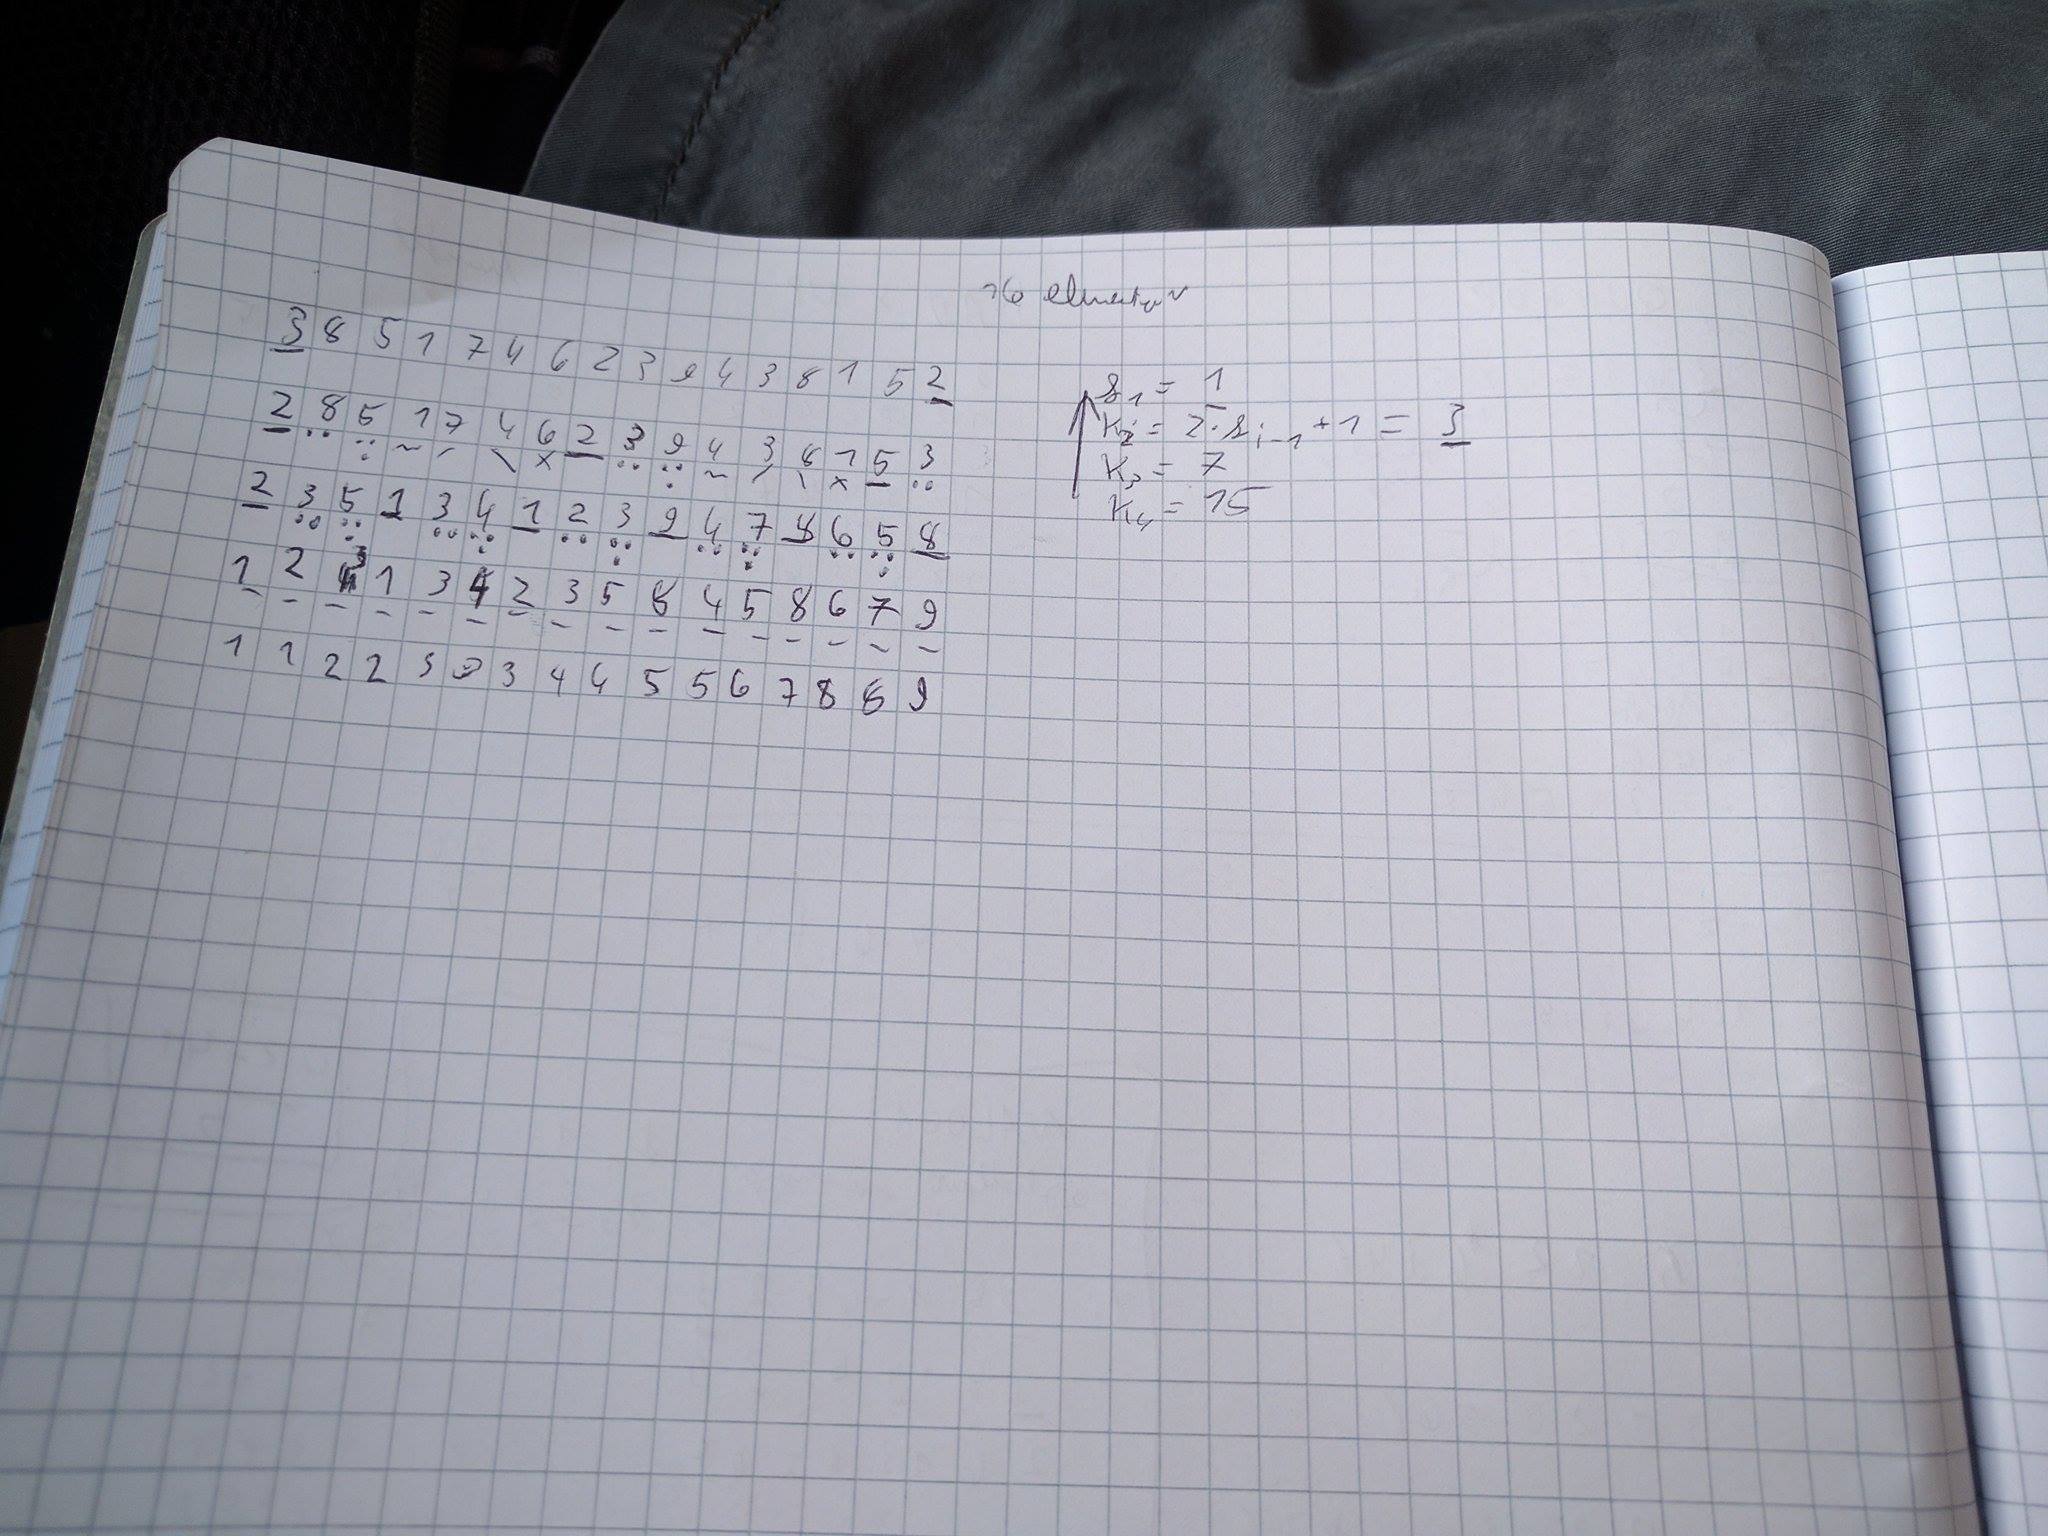 16 elementov
3 8 5 1 7 4 6 2 3 9 4 3 8 1 5 2
2 8 5 1 7 4 6 2 3 9 4 3 8 1 5 3
2 3 5 1 3 4 1 2 3 9 4 7 8 6 5 8
1 2 3 1 3 4 2 3 5 8 4 5 8 6 7 9
1 1 2 2 3 3 3 4 4 5 5 6 7 8 8 9
k₁ = 1
k₂ = 2·kᵢ₋₁ + 1 = 3
k₃ = 7
k₄ = 15